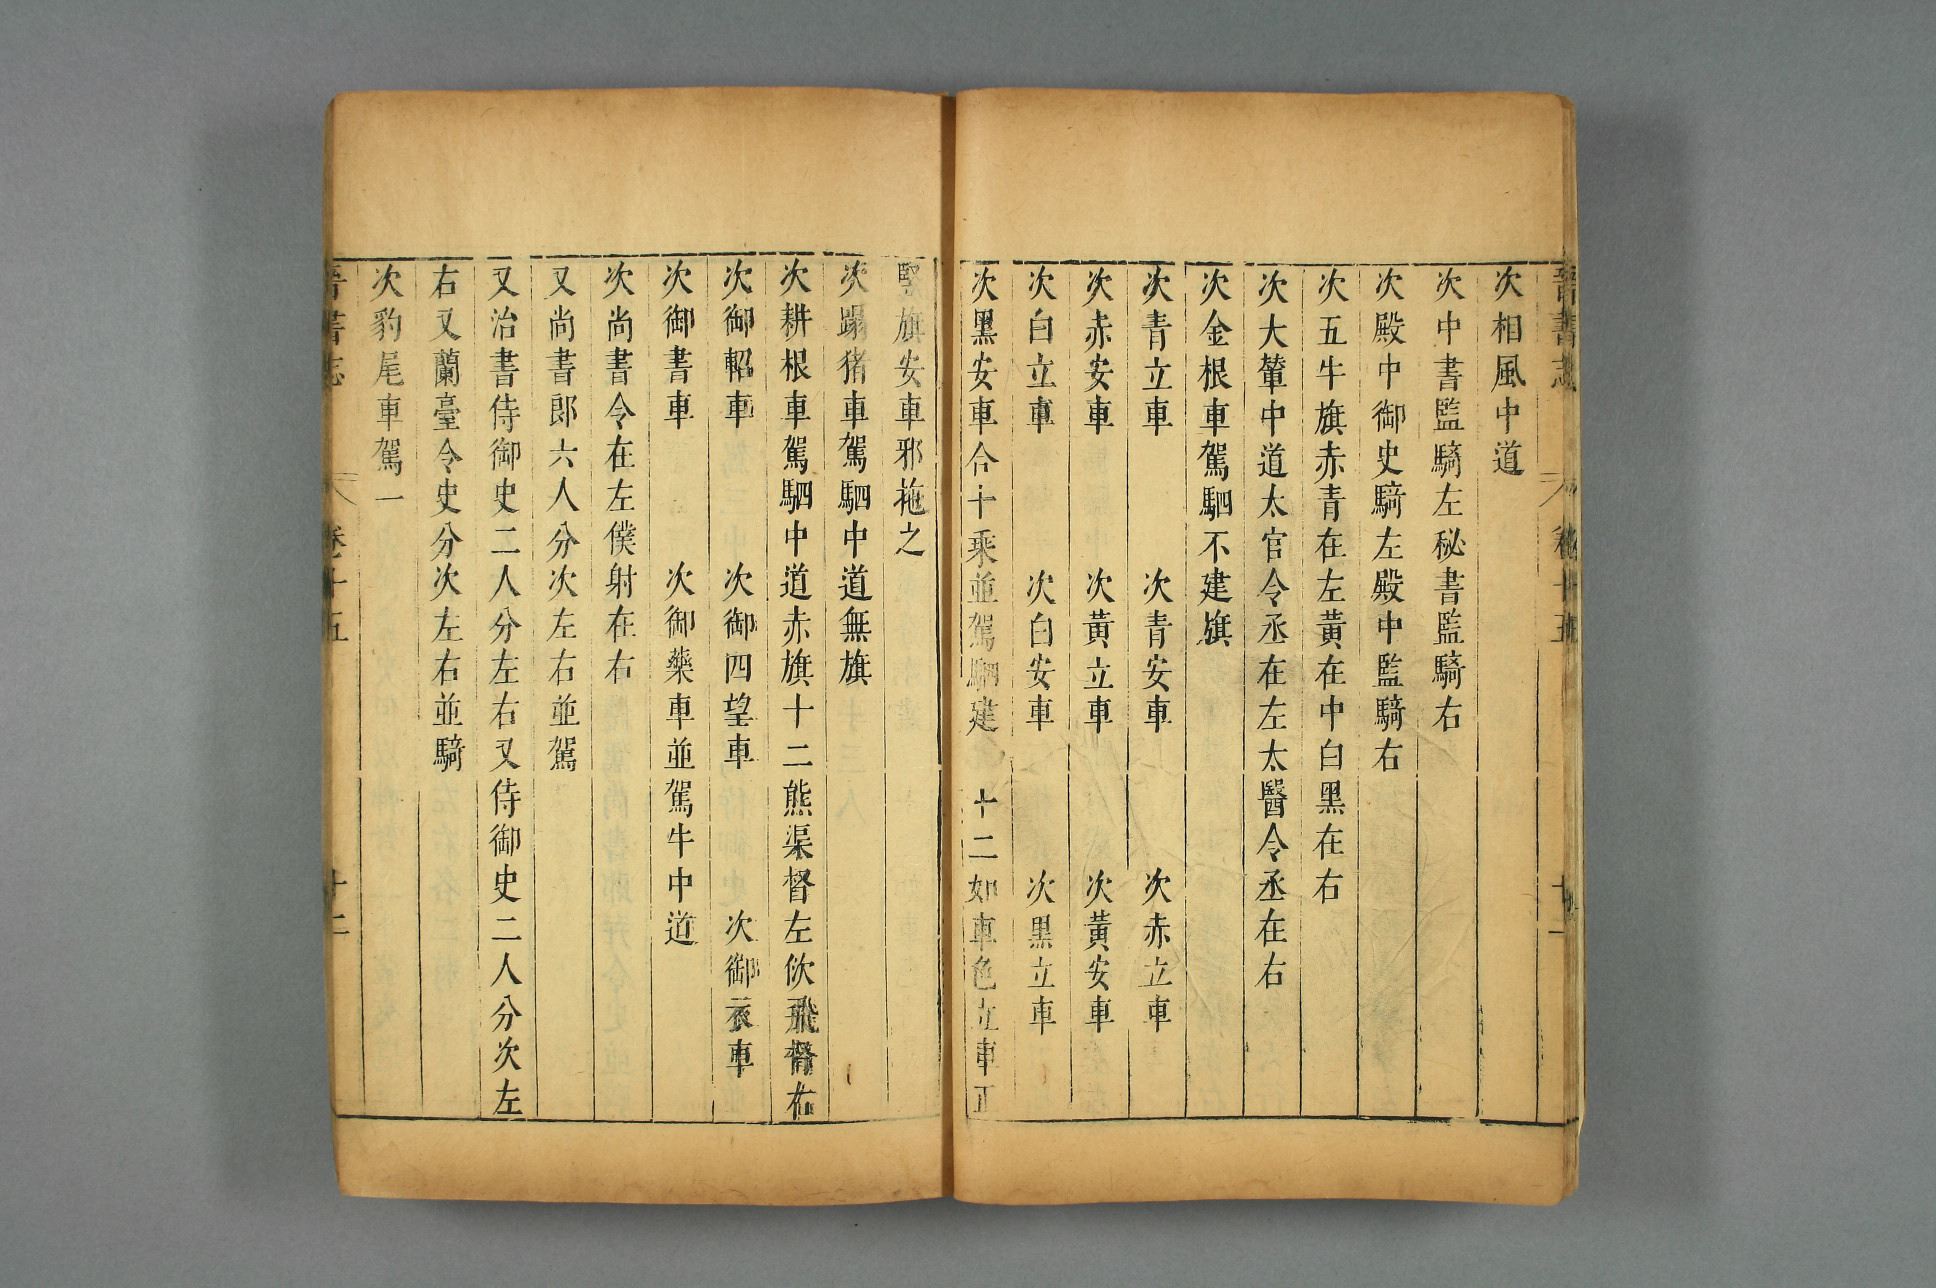 晉書志 卷十五
次相風中道
次中書監騎左秘書監騎右
次殿中御史騎左殿中監騎右
次五牛旗赤青在左黃在中白黑在右
次大輦中道太官令丞在左太醫令丞在右
次金根車駕駟不建旗
次青立車 次青安車 次赤立車
次赤安車 次黃立車 次黃安車
次白立車 次白安車 次黑立車
次黑安車合十乘並駕駟建 十二如車色立車正
竪旗安車邪拖之
次蹋猪車駕駟中道無旗
次耕根車駕駟中道赤旗十二熊渠督左佽飛督右
次御軺車 次御四望車 次御衣車
次御書車 次御藥車並駕牛中道
次尚書令在左僕射在右
又尚書郎六人分次左右並駕
又治書侍御史二人分左右又侍御史二人分次左
右又蘭臺令史分次左右並騎
次豹尾車駕一
晉書志 卷十五 十二